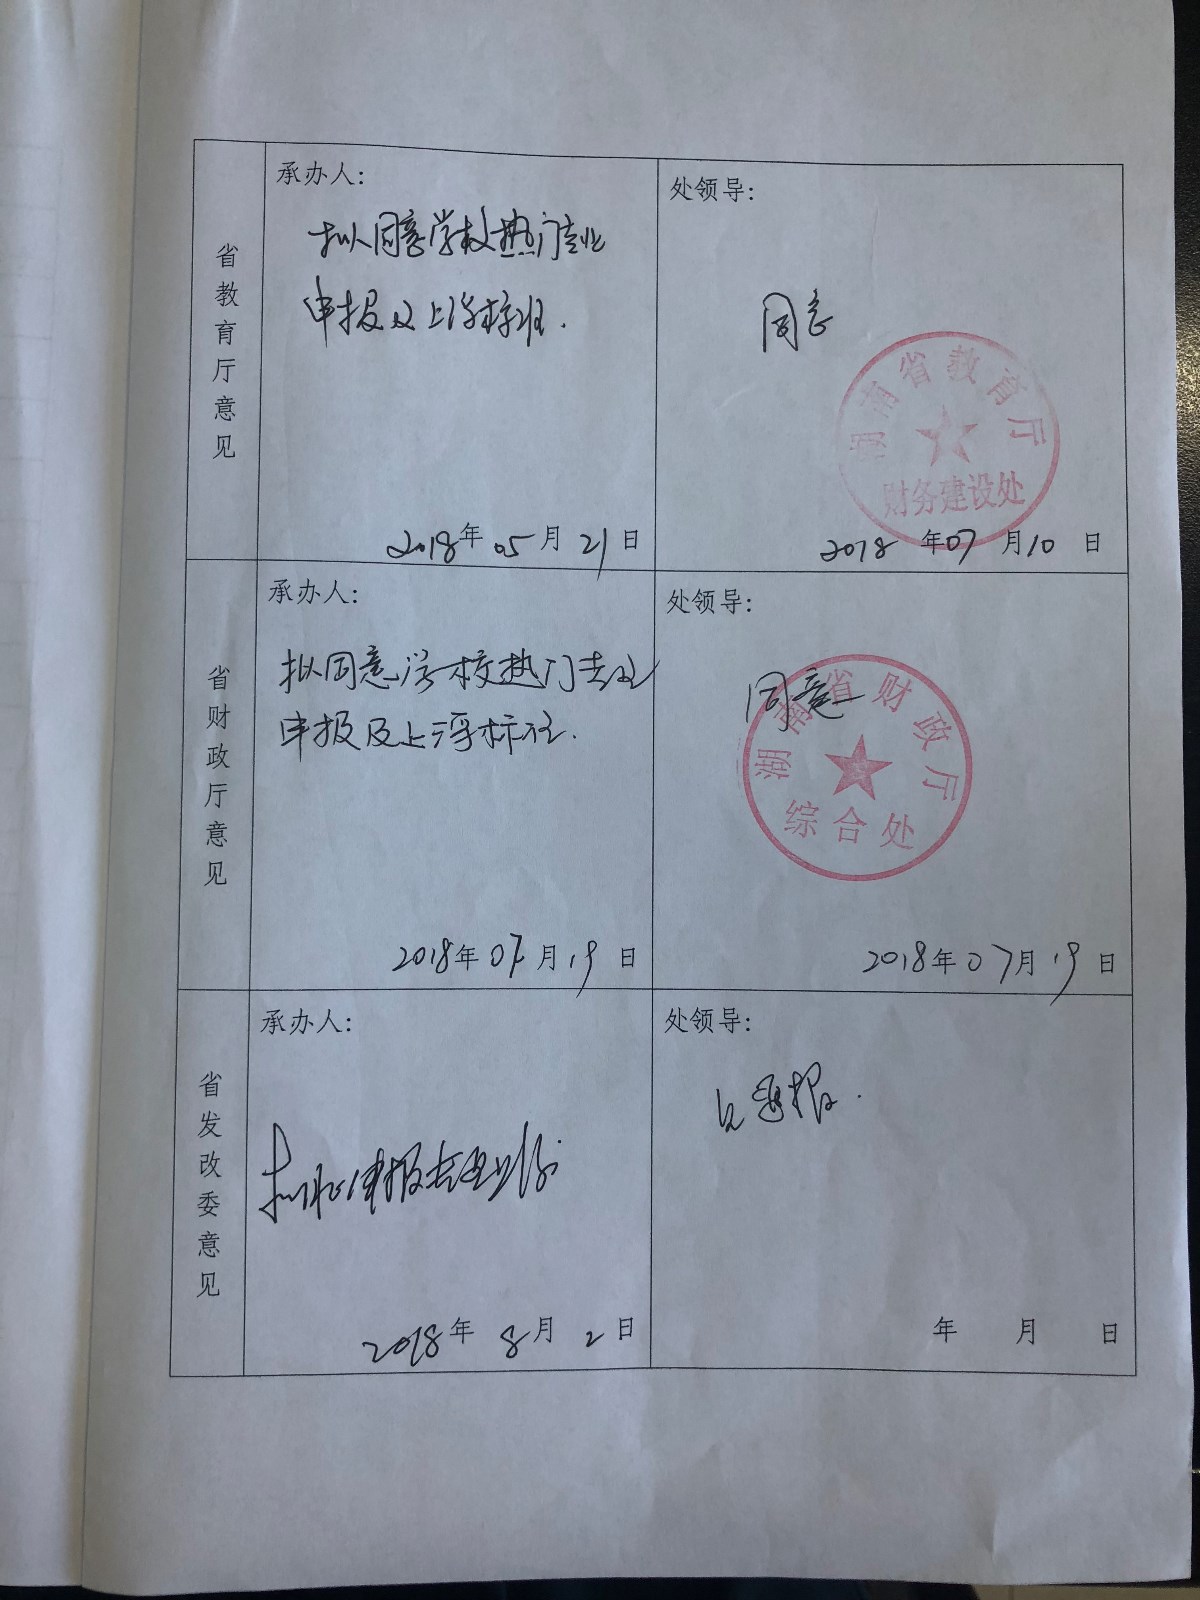 省教育厅意见
承办人:
拟同意学校热门专业
申报及上浮标准.
2018年05月21日
处领导:
同意
湖南省教育厅
财务建设处
2018年07月10日
省财政厅意见
承办人:
拟同意学校热门专业
申报及上浮标准.
2018年07月19日
处领导:
同意
湖南省财政厅
综合处
2018年07月19日
省发改委意见
承办人:
申报专业
2018年8月2日
处领导:
年 月 日